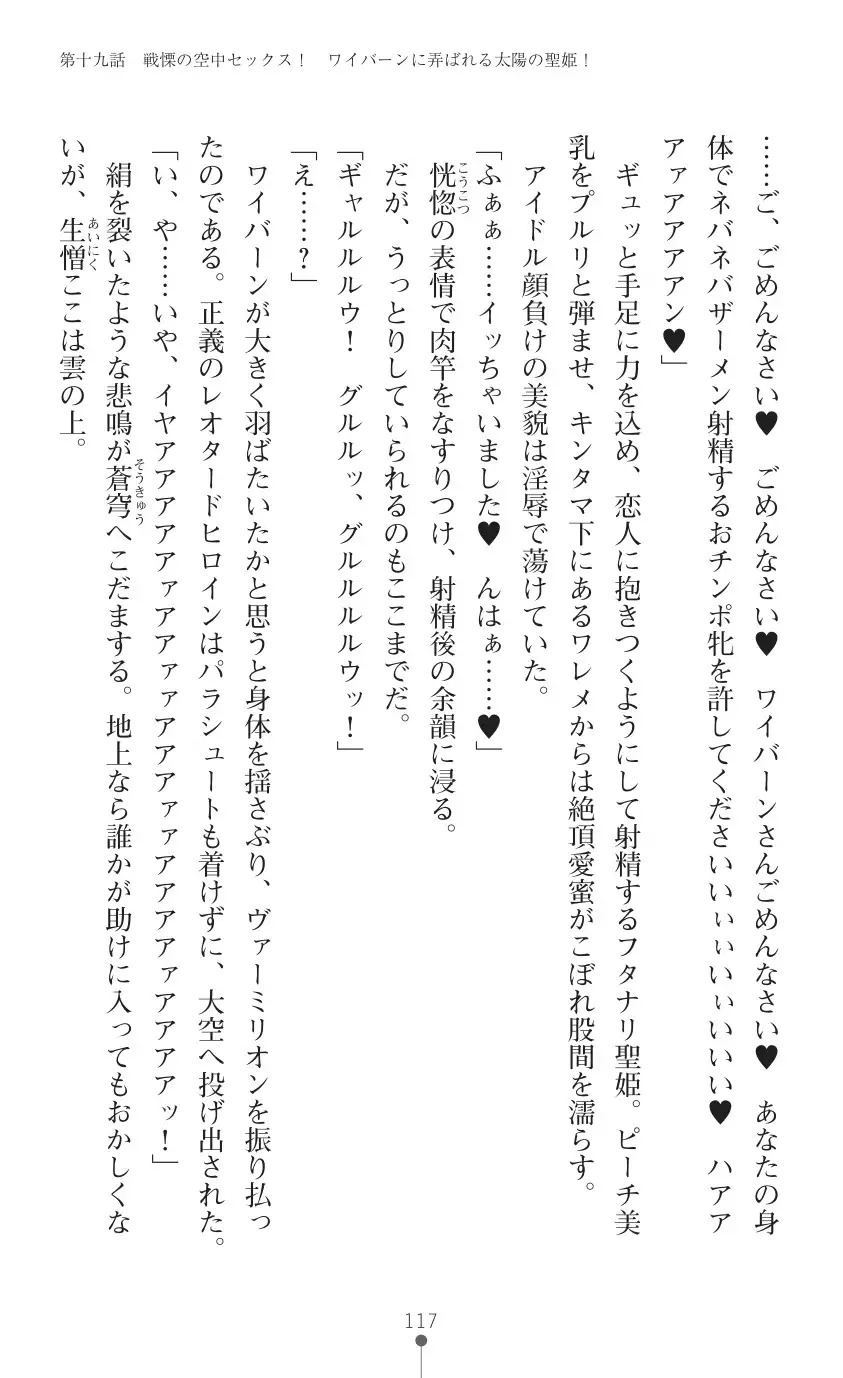 第十九話　戦慄の空中セックス！　ワイバーンに弄ばれる太陽の聖姫！
……ご、ごめんなさい♥　ごめんなさい♥　ワイバーンさんごめんなさい♥　あなたの身
体でネバネバザーメン射精するおチンポ牝を許してくださいいぃぃいぃいいい♥　ハアア
アァアアアアン♥」
　ギュッと手足に力を込め、恋人に抱きつくようにして射精するフタナリ聖姫。ピーチ美
乳をプルリと弾ませ、キンタマ下にあるワレメからは絶頂愛蜜がこぼれ股間を濡らす。
　アイドル顔負けの美貌は淫辱で蕩けていた。
「ふぁぁ……イッちゃいました♥　んはぁ……♥」
　恍惚の表情で肉竿をなすりつけ、射精後の余韻に浸る。
　だが、うっとりしていられるのもここまでだ。
「ギャルルルウ！　グルルッ、グルルルルウッ！」
「え……？」
　ワイバーンが大きく羽ばたいたかと思うと身体を揺さぶり、ヴァーミリオンを振り払っ
たのである。正義のレオタードヒロインはパラシュートも着けずに、大空へ投げ出された。
「い、や……いや、イヤアアアアアァアアァァアアアァァアアアアァアアアアッ！」
　絹を裂いたような悲鳴が蒼穹へこだまする。地上なら誰かが助けに入ってもおかしくな
いが、生憎ここは雲の上。
117